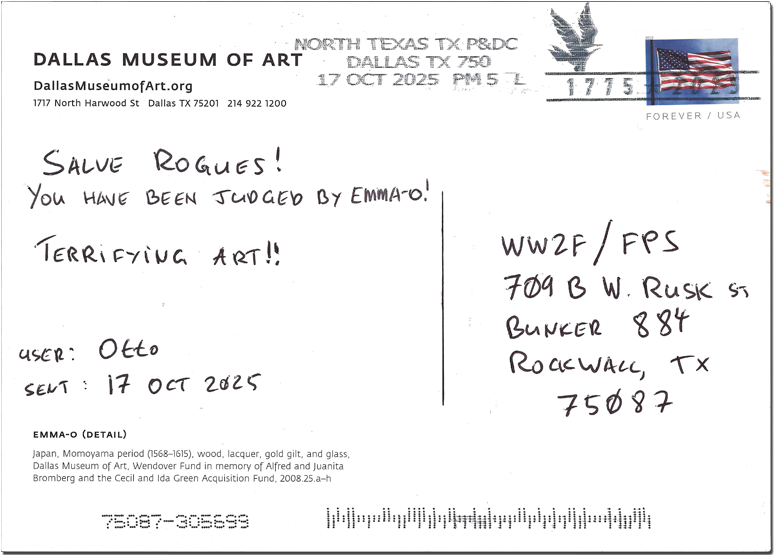 DALLAS MUSEUM OF ART
DallasMuseumofArt.org
1717 North Harwood St Dallas TX 75201 214 922 1200
NORTH TEXAS TX P&DC
DALLAS TX 750
17 OCT 2025 PM 5 L
1775 ★ 2025
FOREVER / USA
SALVE ROGUES!
YOU HAVE BEEN JUDGED BY EMMA-O!
TERRIFYING ART!!
USER: Otto
SENT: 17 OCT 2025
WW2F/FPS
709 B W. RUSK ST
BUNKER 884
ROCKWALL, TX
75087
EMMA-O (DETAIL)
Japan, Momoyama period (1568–1615), wood, lacquer, gold gilt, and glass,
Dallas Museum of Art, Wendover Fund in memory of Alfred and Juanita
Bromberg and the Cecil and Ida Green Acquisition Fund, 2008.25.a–h
75087-305699